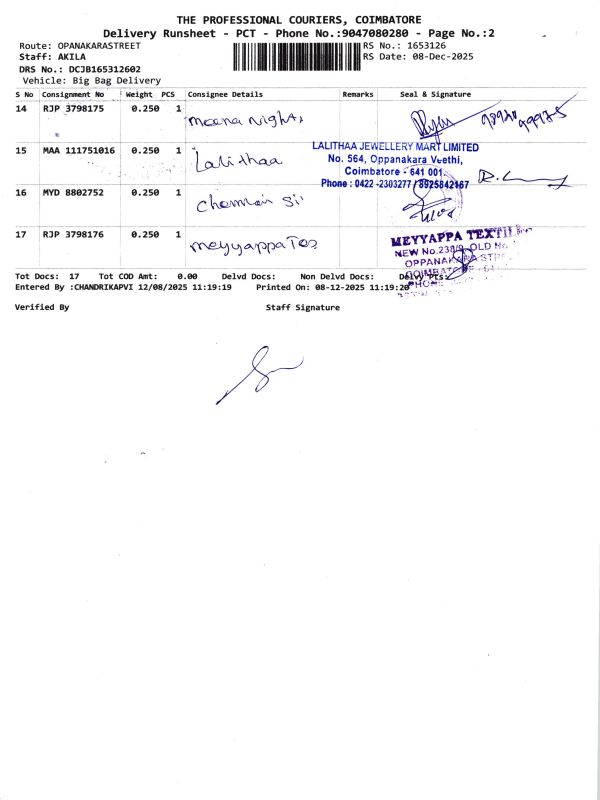 THE PROFESSIONAL COURIERS, COIMBATORE
Delivery Runsheet - PCT - Phone No.:9047080280 - Page No.:2
Route: OPANAKARASTREET
RS No.: 1653126
Staff: AKILA
RS Date: 08-Dec-2025
DRS No.: DCJB165312602
Vehicle: Big Bag Delivery
S No Consignment No Weight PCS Consignee Details Remarks Seal & Signature
14 RJP 3798175 0.250 1 meena nights
15 MAA 111751016 0.250 1 Lalithaa
LALITHAA JEWELLERY MART LIMITED
No. 564, Oppanakara Veethi,
Coimbatore - 641 001.
Phone : 0422 -2303277 / 8925842167
16 MYD 8802752 0.250 1 chennai si
17 RJP 3798176 0.250 1 meyyappa Tex
MEYYAPPA TEXTILE
NEW No.238/9, OLD No.
OPPANAKARA STR
COIMBATORE - 641
PHONE
Tot Docs: 17 Tot COD Amt: 0.00 Delvd Docs: Non Delvd Docs: Delvy Pts:
Entered By :CHANDRIKAPVI 12/08/2025 11:19:19 Printed On: 08-12-2025 11:19:20
Verified By Staff Signature